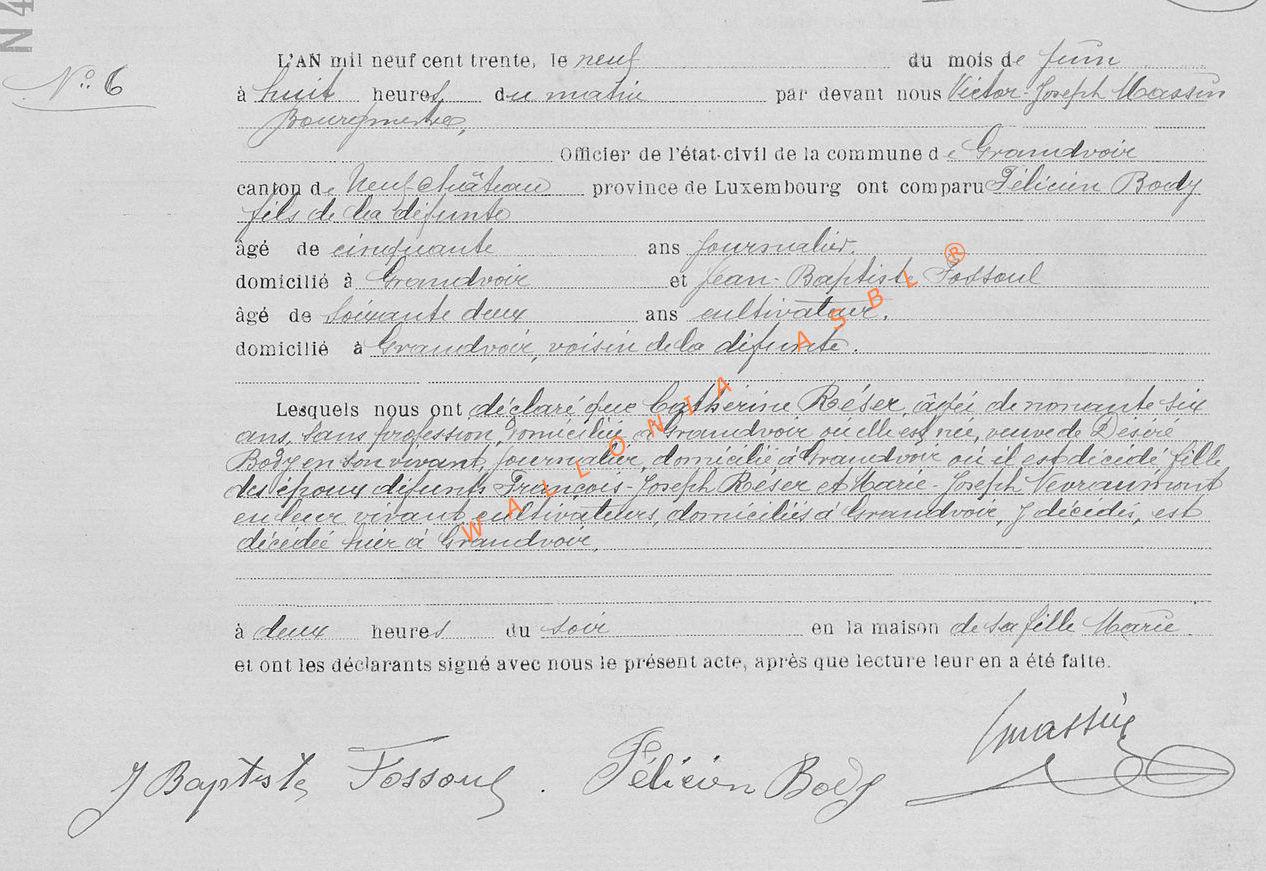 N 4
N° 6
L'AN mil neuf cent trente, le neuf du mois de Juin
à huit heures du matin par devant nous Victor-Joseph Massin
Bourgmestre,
Officier de l'état-civil de la commune de Grandvoir
canton de Neufchâteau province de Luxembourg ont comparu Félicien Body
fils de la défunte
âgé de cinquante ans journalier.
domicilié à Grandvoir et Jean-Baptiste Fossoul
âgé de soixante deux ans cultivateur.
domicilié à Grandvoir, voisin de la défunte.
Lesquels nous ont déclaré que Catherine Réser, âgée de nonante six
ans, sans profession, domiciliée à Grandvoir où elle est née, veuve de Désiré
Body en son vivant, journalier, domicilié à Grandvoir où il est décédé, fille
des époux défunts François-Joseph Réser et Marie-Joseph Nevraumont
en leur vivant cultivateurs, domiciliés à Grandvoir, y décédés, est
décédée hier à Grandvoir,
à deux heures du soir en la maison de sa fille Marie.
et ont les déclarants signé avec nous le présent acte, après que lecture leur en a été faite.
Massin
J Baptiste Fossoul. Félicien Body
WALLONIA ASBL ®